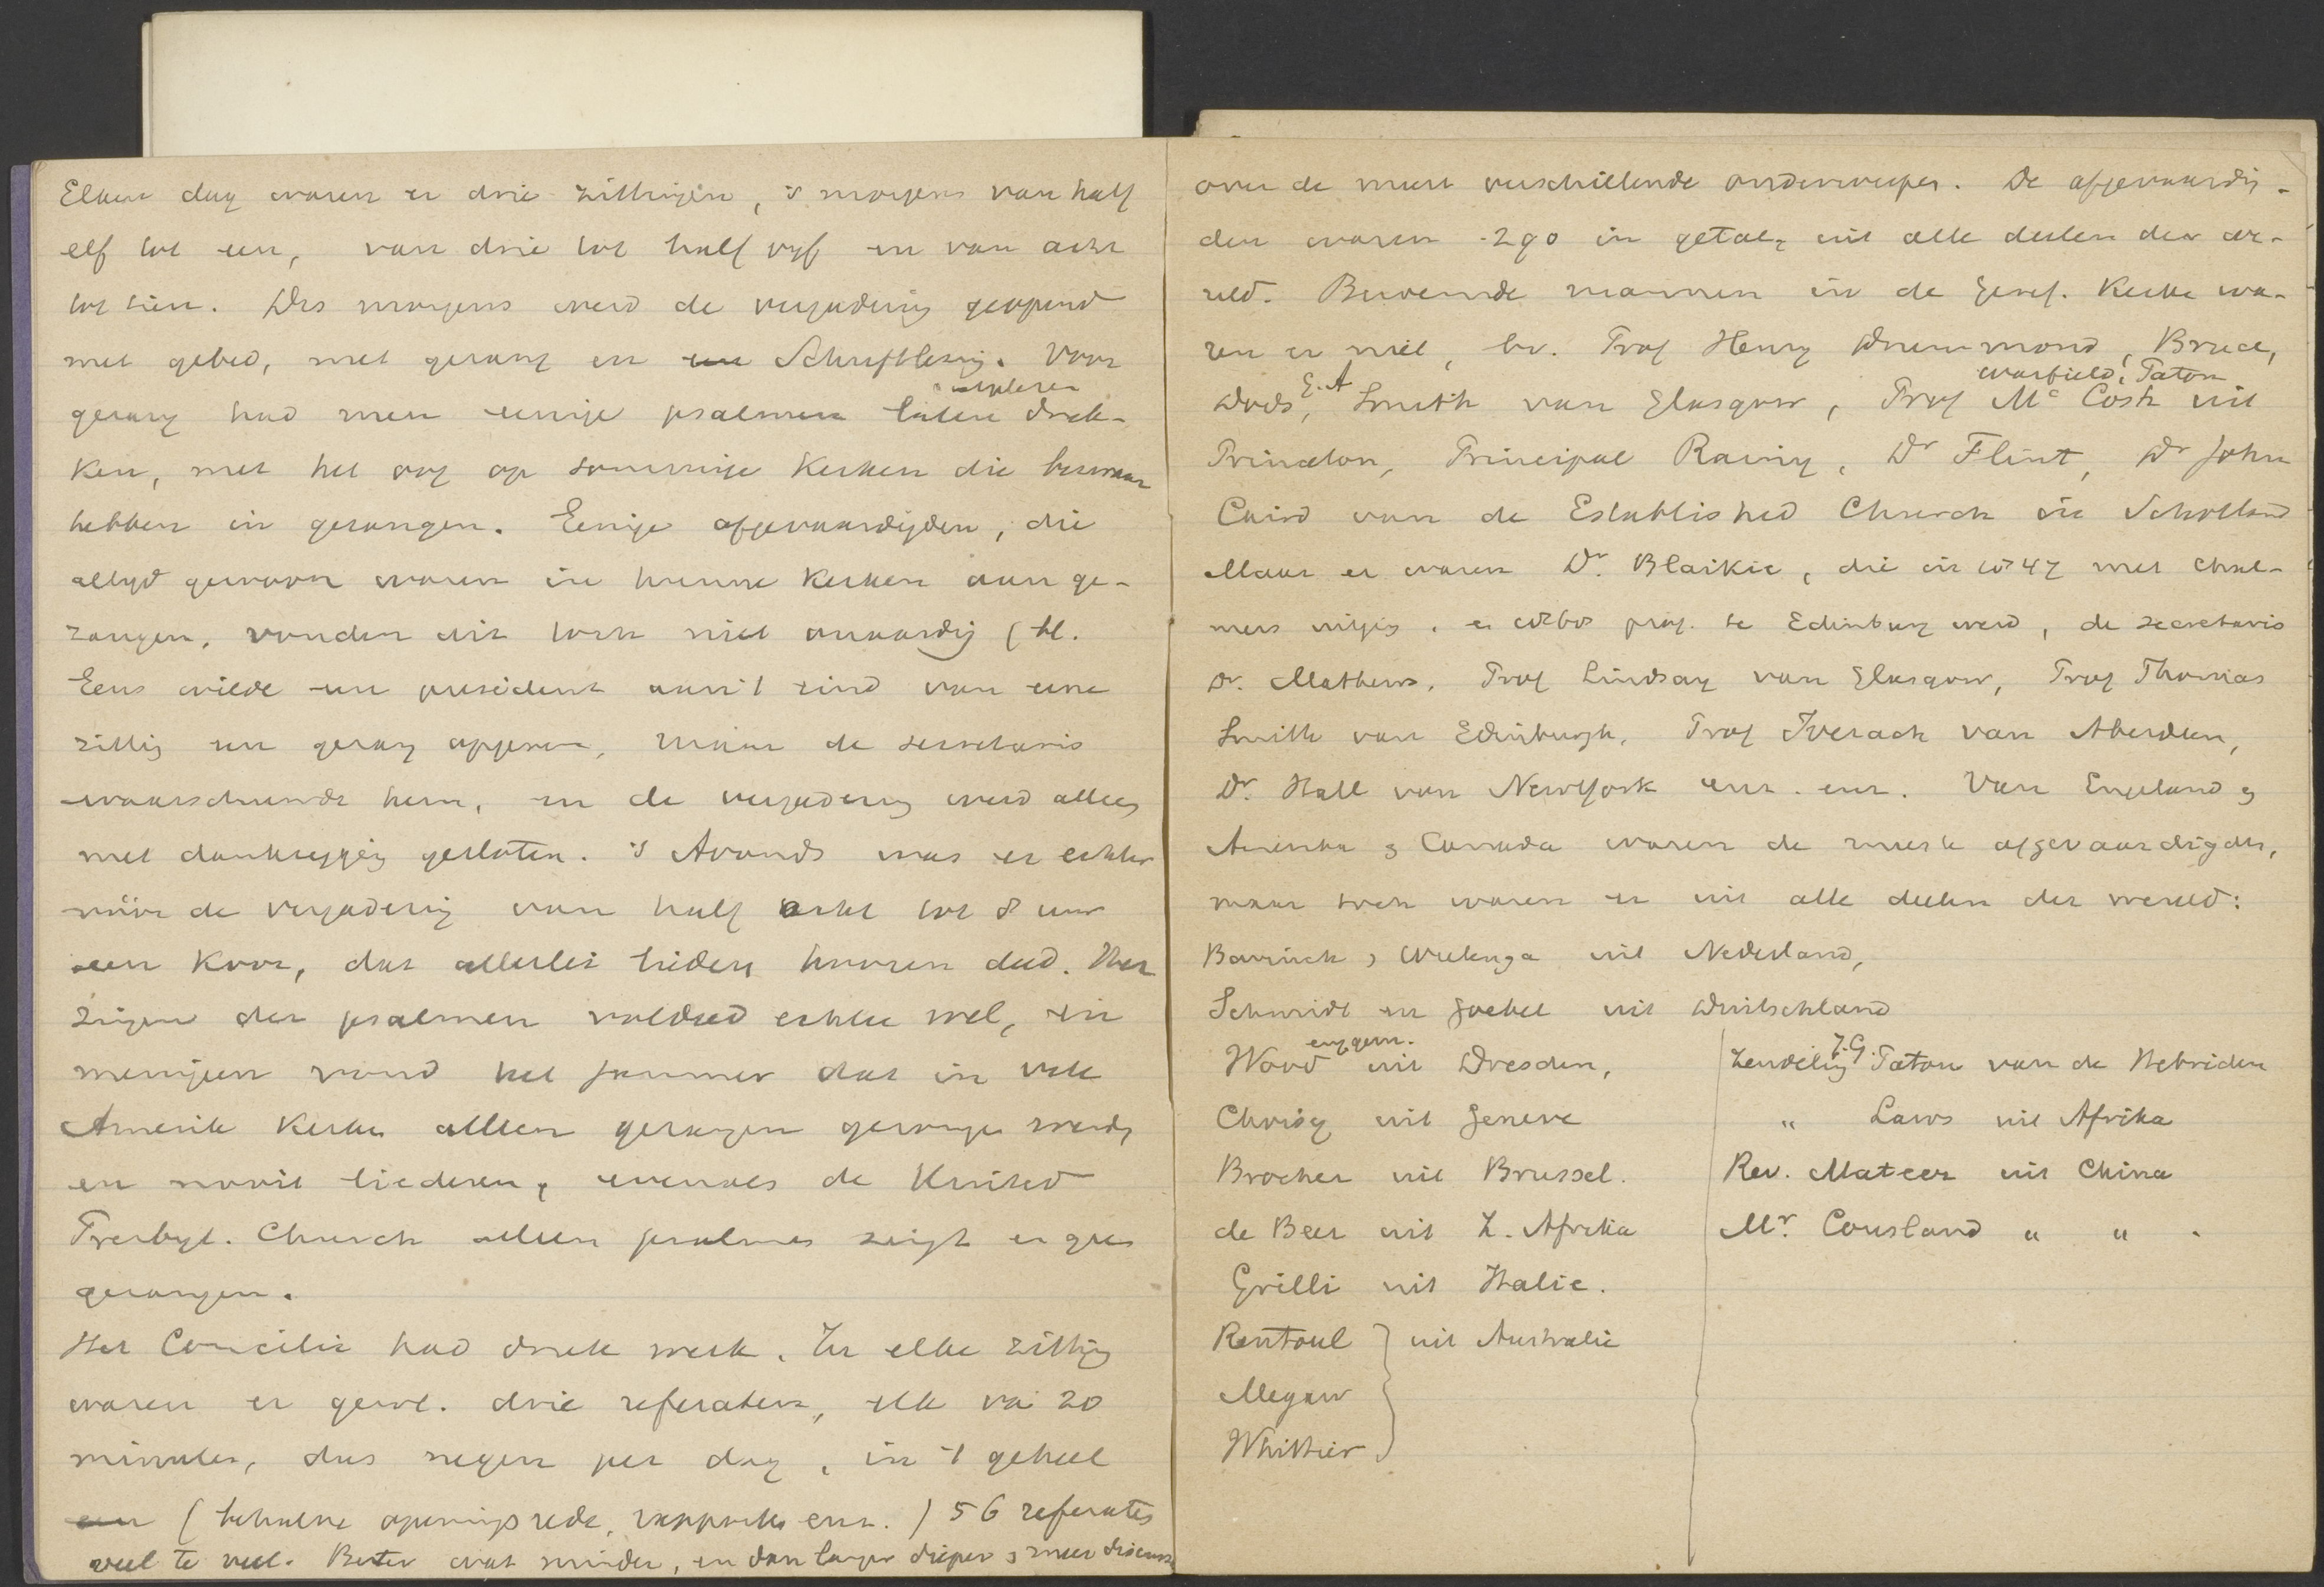 Elken dag waren er drie zittingen, 's morgens van half
elf tot een, van drie tot half vijf en van acht
tot tien. Des morgens werd de vergadering geopend
met gebed, met gezang en een Schriftlezing. Voor
gezang had men eenige psalmen laten druk-
ken, met het oog op sommige Kerken die bezwaar
hebben in gezangen. Eenige afgevaardigden, die
altijd gewoon waren in hunne Kerken aan ge-
zangen, vonden dit toch niet onaardig
Eens wilde een president aan 't eind van eene
zitting een gezang opgeven, maar de secretaris
waarschuwde hem, en de vergadering werd alleen
met dankzegging gesloten. 's Avonds was er echter
vóór de vergadering van half acht tot 8 uur
een Koor, dat allerlei liederen hooren deed. Het
zingen der psalmen voldeed echter wel, en
menigeen vond het jammer dat in vele
Amerik Kerken alleen gezangen gezongen werden
en nooit liederen, evenals de United
Presbyt. Church alleen psalmen zingt en geen
gezangen.
Het Concilie had druk werk. In elke zitting
waren er gew. drie referaten, elk van 20
minuten, dus negen per dag, in 't geheel
een (behalve openingsrede, rapporten enz.) 56 referaten
veel te veel. Beter wat minder, en dan langer dieper en meer discussie
over de meest verschillende onderwerpen. De afgevaardig-
den waren 290 in getal, uit alle deelen der we-
reld. Beroemde mannen in de Geref. Kerken wa-
ren er niet, bv. Prof Henry Drummond, Bruce,
Warfield, Paton
Dods, G. A Smith van Glasgow, Prof Mc Cosh uit
Princeton, Principal Rainy, Dr Flint, Dr John
Caird van de Established Church in Schotland
Maar er waren Dr. Blaikie, die in 1847 met Chal-
mers uitging, en 1868 prof. te Edinburg werd, de secretaris
Dr. Mathews, Prof Lindsay van Glasgow, Prof Thomas
Smith van Edinburgh, Prof Iverach van Aberdeen,
Dr. Hall van New York enz. enz. Van Engeland en
Amerika en Canada waren de meeste afgevaardigden,
maar toch waren er uit alle deelen der wereld:
Bavinck en Wielenga uit Nederland,
Schmidt en Goebel uit Duitschland
Word uit Dresden,
Choisy uit Geneve
Brocher uit Brussel.
de Beer uit Z. Afrika
Grilli uit Italie.
Rentoul } uit Australie
Megaw
Whittier
Zendeling J. G. Paton van de Hebriden
" Laws uit Afrika
Rev. Mateer uit China
Mr. Cousland " "